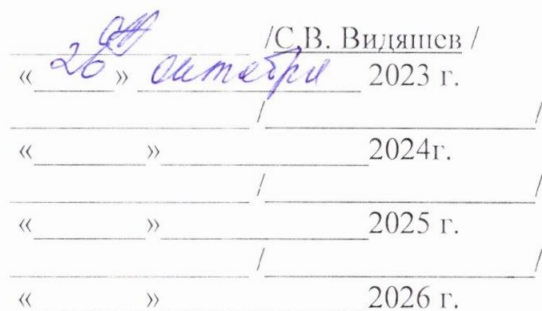 /С.В. Видяшев /
«26» октября 2023 г.
/ /
« » 2024г.
/ /
« » 2025 г.
/ /
« » 2026 г.